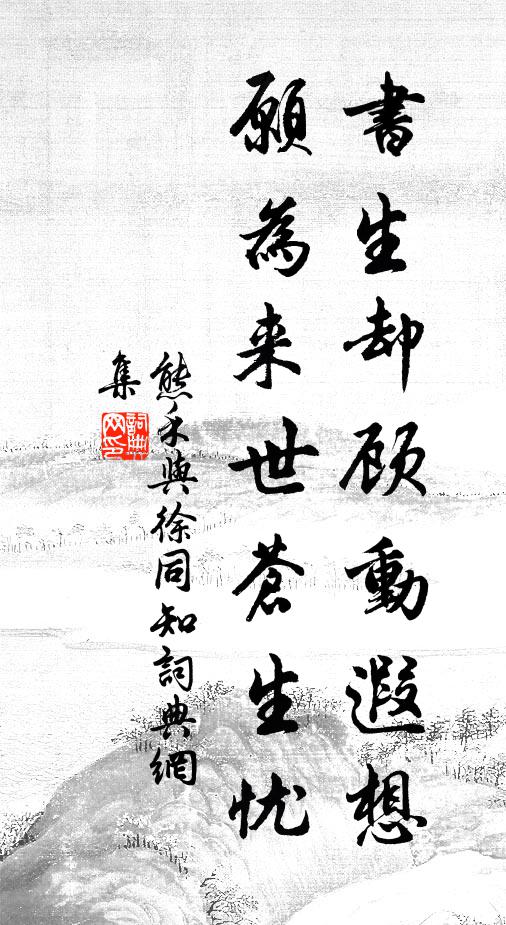 書生却顧動遐想
願為来世蒼生忧
熊禾與徐同知詞典網
集
詞典网印